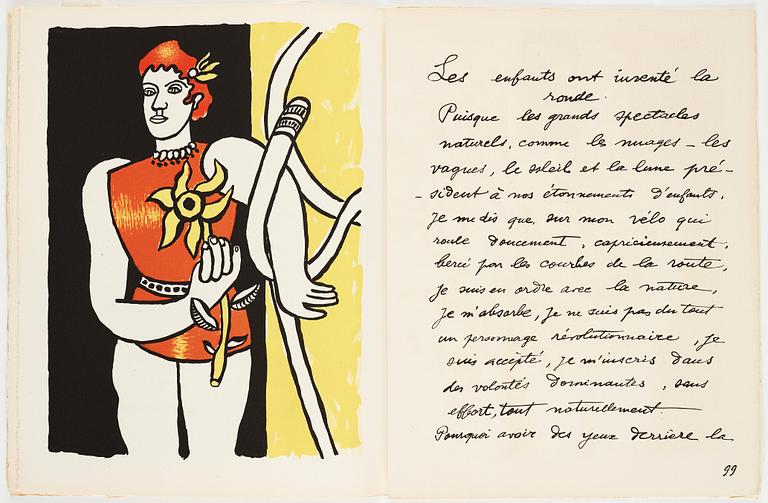 Les enfants ont inventé la
ronde.
Puisque les grands spectacles
naturels, comme les nuages - les
vagues, le soleil et la lune pré-
-sident à nos étonnements d'enfants,
Je me dis que, sur mon vélo qui
roule doucement, capricieusement,
bercé par les courbes de la route,
Je suis en ordre avec la nature,
Je m'absorbe, Je ne suis pas du tout
un personnage révolutionnaire, Je
suis accepté, Je m'inscris dans
des volontés dominantes, sans
effort, tout naturellement.
Pourquoi avoir des yeux derrière la
99